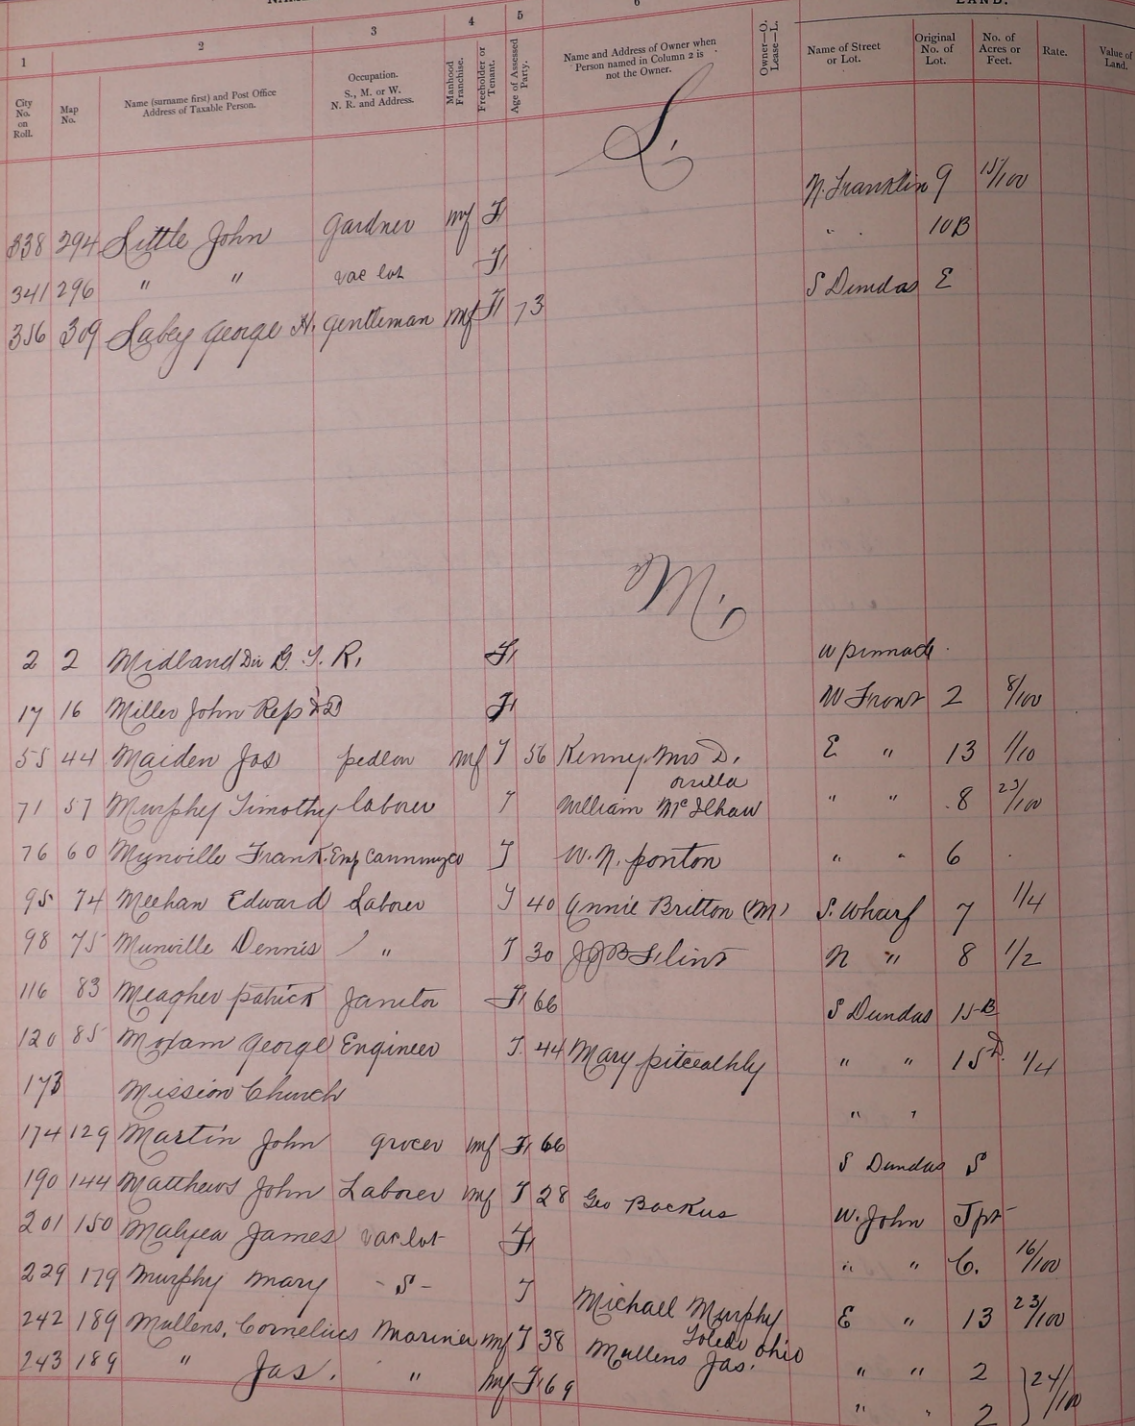 LAND.
1 2 3 4 5 6
City No. on Roll. Map No. Name (surname first) and Post Office Address of Taxable Person. Occupation. S., M. or W. N. R. and Address. Manhood Franchise. Freeholder or Tenant. Age of Assessed Party. Name and Address of Owner when Person named in Column 2 is not the Owner. Owner—O. Lease—L. Name of Street or Lot. Original No. of Lot. No. of Acres or Feet. Rate. Value of Land.
L.
338 294 Little John Gardner mf F N. Franklin 9 15/100
341 296 " " vac lot F " . 10B
356 309 Labey George H. gentleman mf F 73 S Dundas E
M.
2 2 Midland Div G. T. R. F W pinnacle
17 16 Miller John Reps F W Front 2 8/100
55 44 Maiden Jas pedlar mf T 56 Kenny Mrs D. orillia E " 13 1/10
71 57 Murphy Timothy laborer T William McIlhaw " " 8 23/100
76 60 Mynville Frank Emp Canning co T W. N. ponton " " 6
95 74 Meehan Edward Laborer T 40 Annie Britton (M) S. Wharf 7 1/4
98 75 Munville Dennis " T 30 J J B Flint N " 8 1/2
116 83 Meagher patrick Janitor F 66 S Dundas 15 B
120 85 Moxam George Engineer T. 44 Mary pitceathly " " 15 D. 1/4
173 Mission Church " "
174 129 Martin John grocer mf F 66 S Dundas S
190 144 Matthews John Laborer mf T 28 Geo Backus W. John J pt
201 150 Malyea James vac lot F " " C. 16/100
229 179 Murphy Mary - S - T Michael Murphy Toledo ohio E " 13 23/100
242 189 Mullens, Cornelius Mariner mf T 38 Mullens Jas. " " 2 24/100
243 189 " Jas. " mf F 69 " " 2